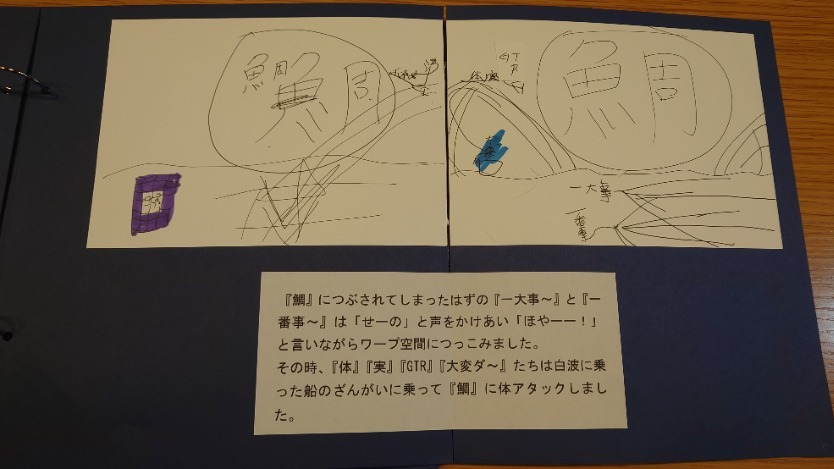 魚周
鯛
GTR
鯛
一大事
一番事
『鯛』につぶされてしまったはずの『一大事～』と『一
番事～』は「せーの」と声をかけあい「ほやーー！」
と言いながらワープ空間につっこみました。
その時、『体』『実』『GTR』『大変ダ～』たちは白波に乗
った船のざんがいに乗って『鯛』に体アタックしまし
た。